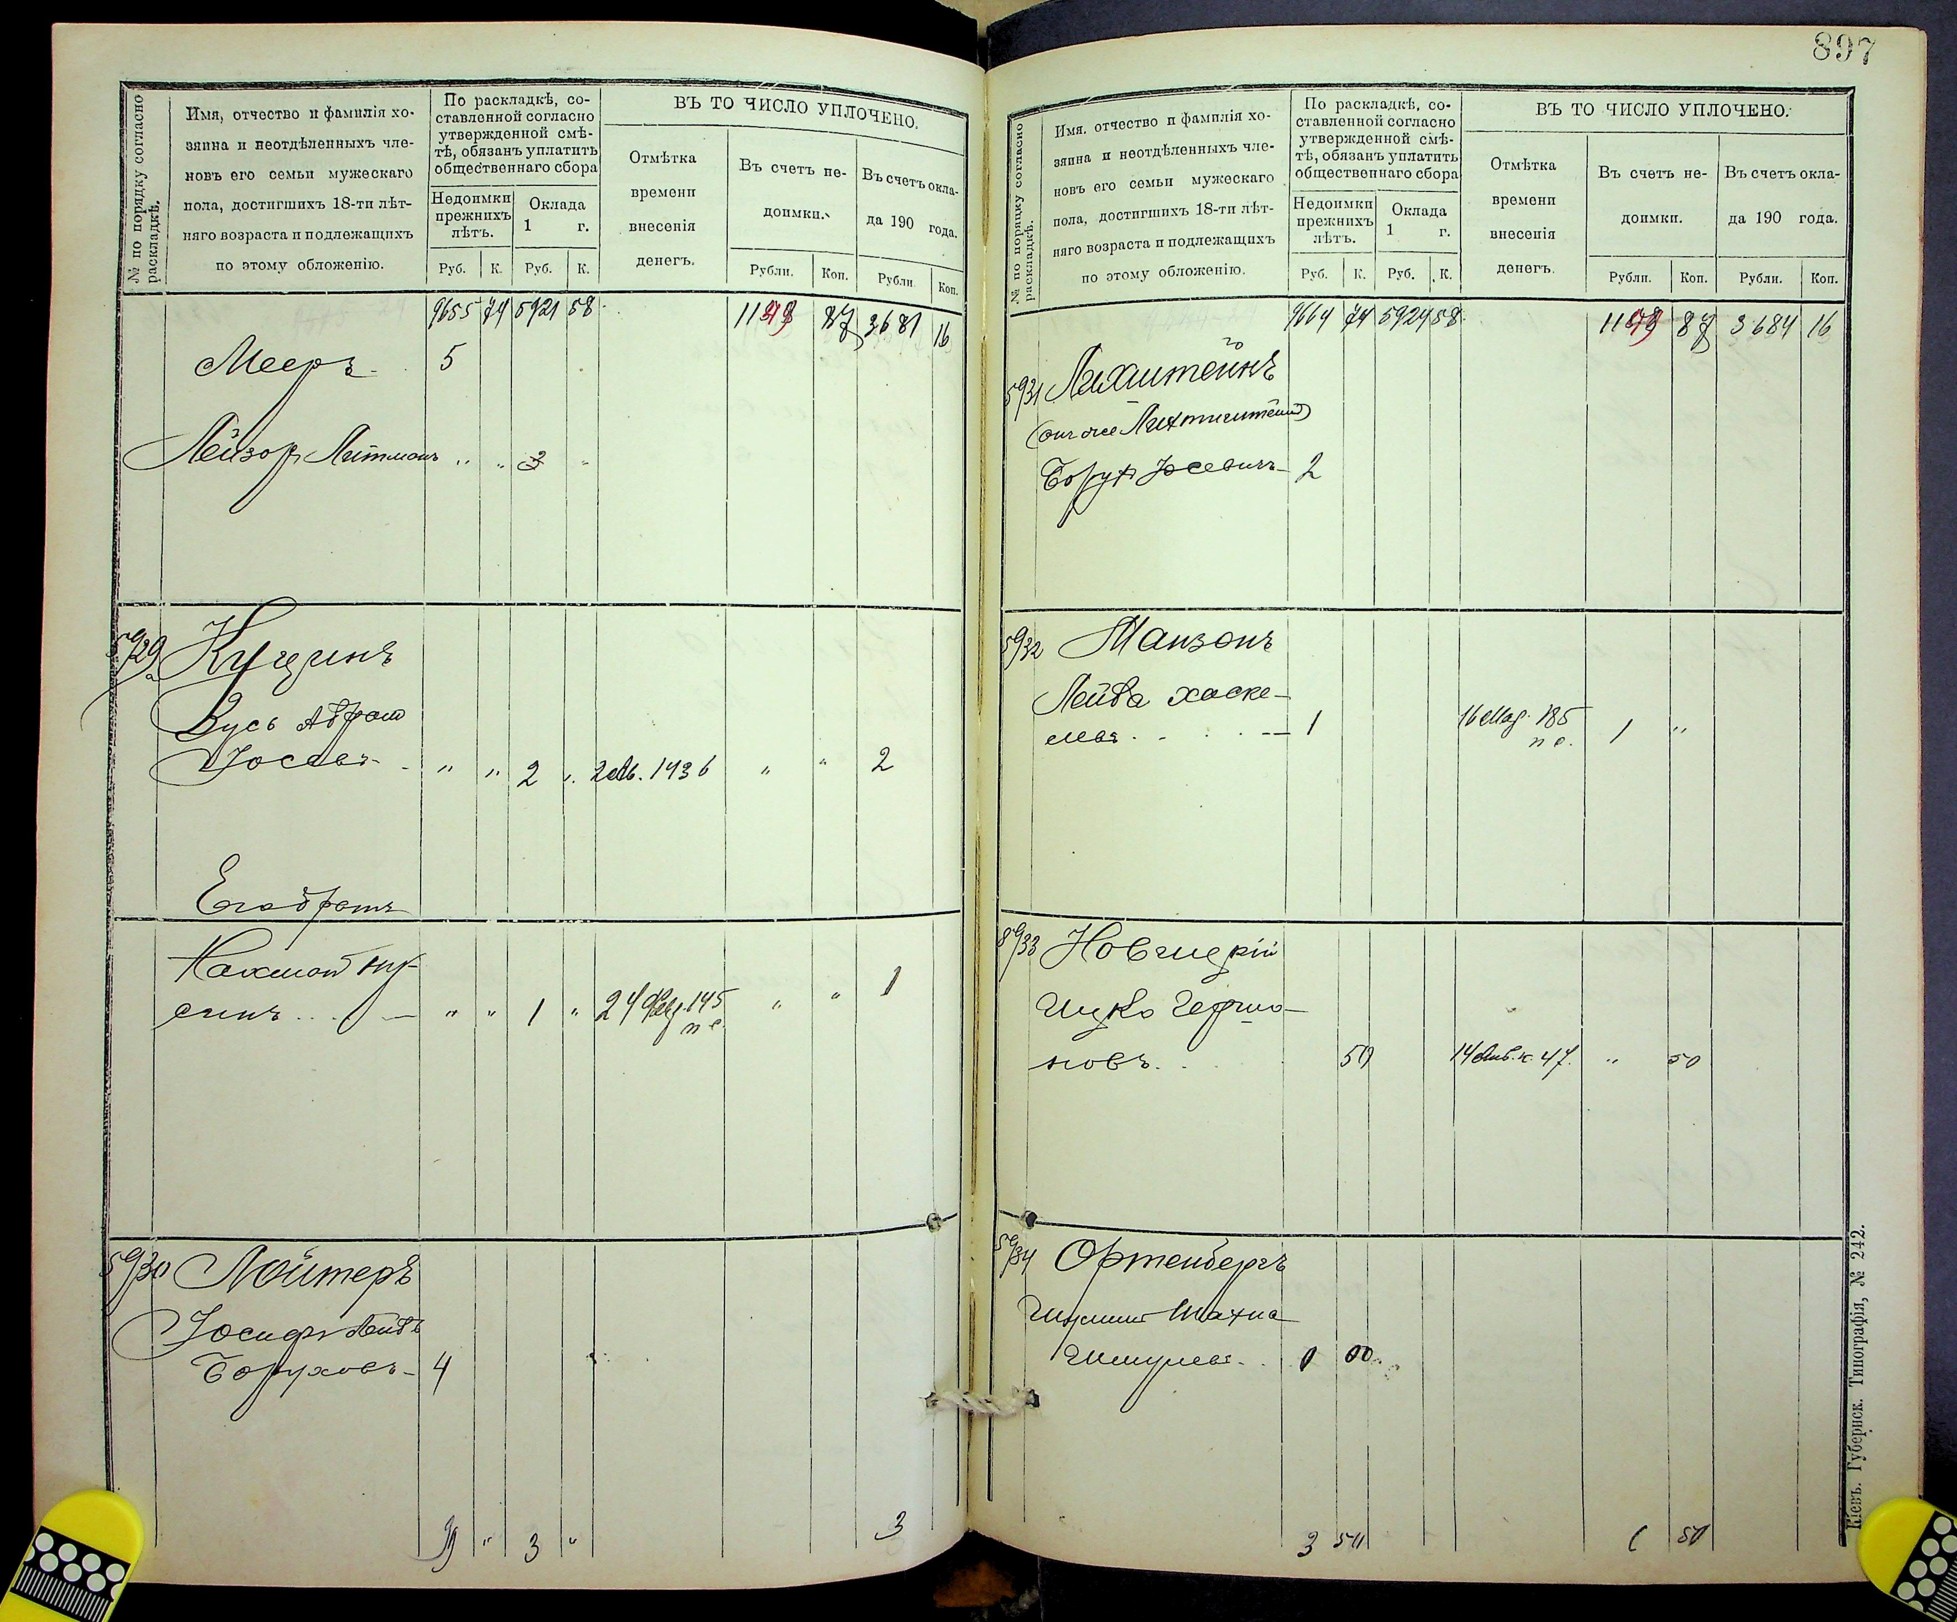 № по порядку согласно раскладкѣ.
Имя, отчество и фамилія хо-
зяина и неотдѣленныхъ чле-
новъ его семьи мужескаго
пола, достигшихъ 18-ти лѣт-
няго возраста и подлежащихъ
по этому обложенію.
По раскладкѣ, со-
ставленной согласно
утвержденной смѣ-
тѣ, обязанъ уплатить
общественнаго сбора
Недоимки прежнихъ лѣтъ.
Оклада 1 г.
Руб. К. Руб. К.
ВЪ ТО ЧИСЛО УПЛОЧЕНО.
Отмѣтка
времени
внесенія
денегъ.
Въ счетъ не-
доимки.
Въ счетъ окла-
да 190 года.
Рубли. Коп. Рубли Коп.
9655 74 5921 58 87 3681 16
Мееръ 5
Лейзоръ Литманъ " " "
5929 Кущинъ
Зусь Абрам
Іосевъ - " " 2 " 1436 " " 2
Его братъ
" " 1 " 24 145 " " 1
п с.
5930 Лойтеръ
Іосифъ Лейбъ
Боруховъ - 4
9 " 3 " 3
897
№ по порядку согласно раскладкѣ.
Имя, отчество и фамилія хо-
зяина и неотдѣленныхъ чле-
новъ его семьи мужескаго
пола, достигшихъ 18-ти лѣт-
няго возраста и подлежащихъ
по этому обложенію.
По раскладкѣ, со-
ставленной согласно
утвержденной смѣ-
тѣ, обязанъ уплатить
общественнаго сбора
Недоимки прежнихъ лѣтъ.
Оклада 1 г.
Руб. К. Руб. К.
ВЪ ТО ЧИСЛО УПЛОЧЕНО.
Отмѣтка
времени
внесенія
денегъ.
Въ счетъ не-
доимки.
Въ счетъ окла-
да 190 года.
Рубли. Коп. Рубли. Коп.
9664 74 5924 58 87 3684 16
5931 Лихштейнъ
(онъ же Лихтинштейнъ)
Борухъ Іосевичъ - 2
5932 Манзонъ
Лейба Хаске-
левъ - 1 16 185 1 "
п с.
5933 Новицкій
Ицко Гершо-
новъ. 50 14 47. " 50
5934 Ортенбергъ
Шахна
3 50 1 50
Кіевъ. Губернск. Типографія, № 242.